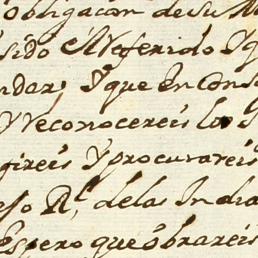 obligacon de su M
sido Arreferido Y q
ndar; Y que En Cons
Y Reconocereis lo
gireis Y procurareis
eso Rl. delas India
Espero que obrareis